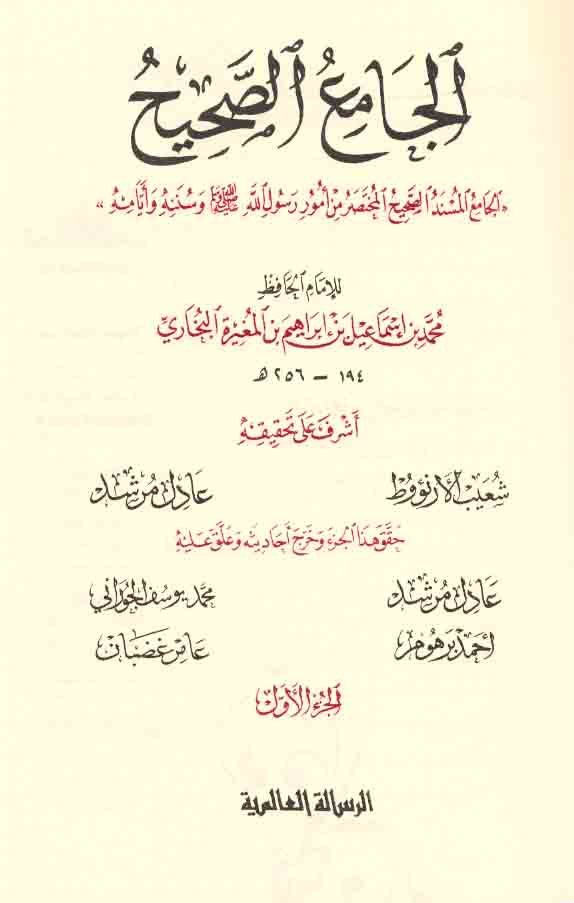 الجَامِعُ الصَّحِيحُ
«الجَامِعُ المُسْنَدُ الصَّحِيحُ المُخْتَصَرُ مِنْ أُمُورِ رَسُولِ اللَّهِ ﷺ وَسُنَنِهِ وَأَيَّامِهِ»
لِلإِمَامِ الحَافِظِ
مُحَمَّد بن إسْمَاعِيل بن إبْرَاهِيم بن المُغِيرَة البُخَارِيِّ
١٩٤ – ٢٥٦ هـ
أَشْرَفَ عَلَى تَحْقِيقِهِ
شُعَيب الأرنؤوط عَادِل مُرشد
حَقَّقَ هَذَا الجُزْءَ وَخَرَّجَ أَحَادِيثَهُ وَعَلَّقَ عَلَيْهِ
عَادِل مُرشد محمّد يوسف الجوراني
أحمَد بَرهوم عَامِر غَضبَان
الجُزْءُ الأَوَّلُ
الرسالة العالمية